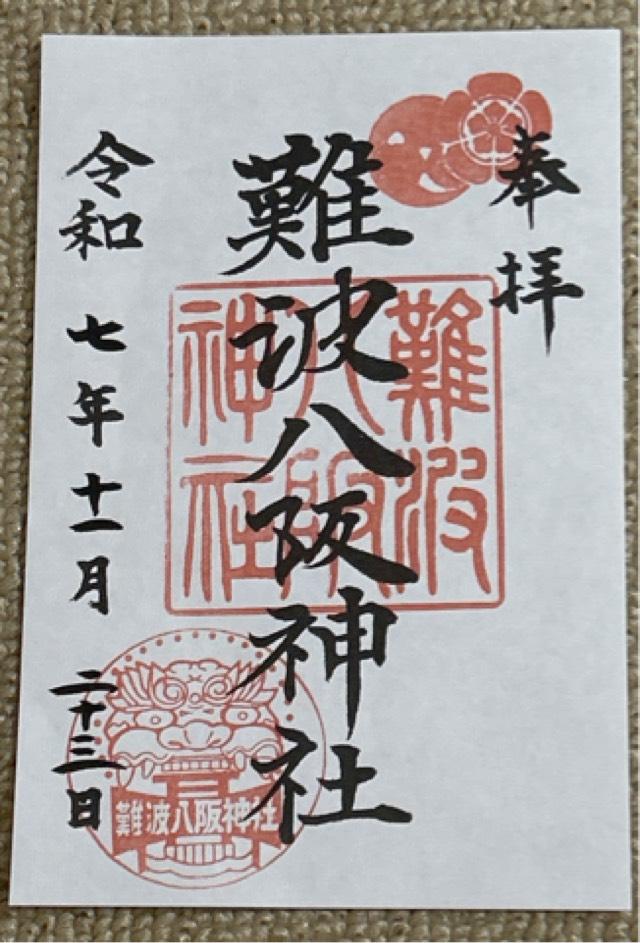 奉拝
難波八阪神社
難波八阪神社
令和七年十一月二十三日
難波八阪神社